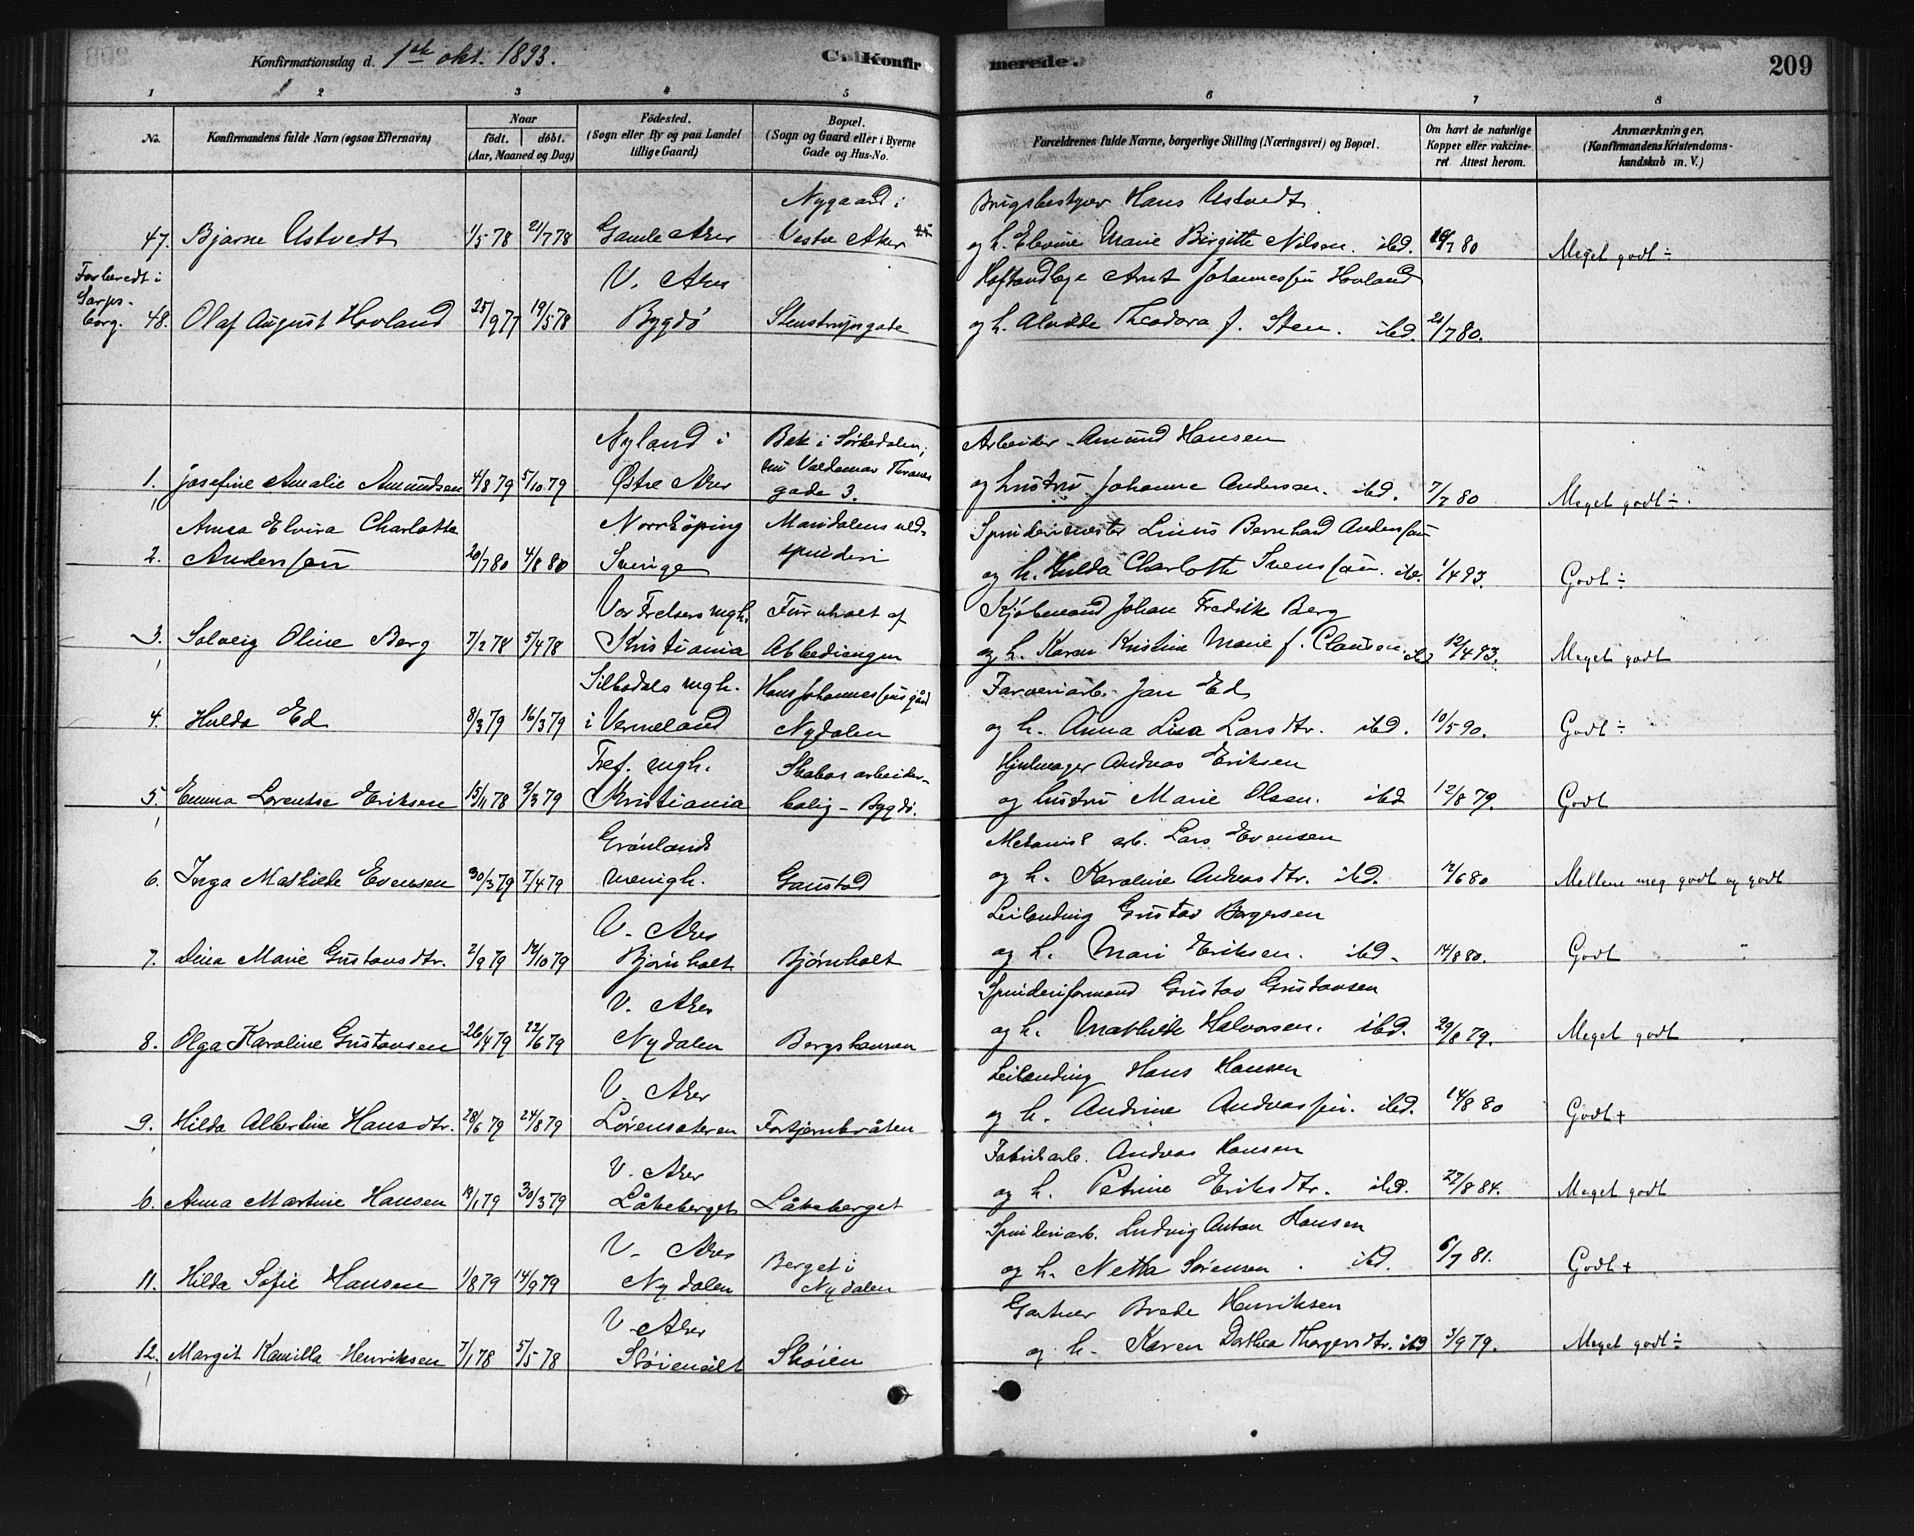 Konfirmationsdag d. 1ste okt. 1893.
C. Konfirmerede.
209
1 2 3 4 5 6 7 8
No.
Konfirmandens fulde Navn (ogsaa Efternavn)
Naar
født. døbt.
(Aar, Maaned og Dag)
Fødested.
(Sogn eller By og paa Landet
tillige Gaard)
Bopæl.
(Sogn og Gaard eller i Byerne
Gade og Hus-No.
Forældrenes fulde Navne, borgerlige Stilling (Næringsvei) og Bopæl.
Om havt de naturlige
Kopper eller vakcine-
ret Attest herom.
Anmærkninger.
(Konfirmandens Kristendoms-
kundskab m. V.)
Nygaard i Brugsbestyrer Hans Ustvedt
47. Bjarne Ustvedt 1/5 78 21/7 78 Gamle Aker Vestre Aker og h. Elevine Marie Birgitte Nilsen. ibd. 19/7 80 Meget godt ÷
Forberedt i
Sarps-
borg.
V. Aker Arnt Johannessen Hovland
48. Olaf August Hovland 25/9 77 19/5 78 Bygdö Stenstrupsgade og h. Alvilde Theodora f. Sten. ibd. 21/7 80.
Nyland i Bak i Sörkedalen, Arbeider Amund Hansen
nu Valdemar Thranes
1. Josefine Amalie Amundsen 4/8 79 5/10 79 Østre Aker gade 3. og hustru Johanne Andersen. ibd. 7/7 80 Meget godt ÷.
Anna Elvira Charlotta Norrköping Maridalens uld- Spinderimester Linus Bernhard Andersson
2. Andersson 20/7 80 4/8 80 Sverige spinderi og h. Hulda Charlotte Svensson. ibd. 1/4 93. Godt ÷
Vor Frelsers mgh. Furuholt af Kjöbmand Johan Fredrik Berg
3. Solveig Oline Berg 7/2 78 5/4 78 Kristiania Abbediengen og h. Karen Kristine Marie f. Clausen. ibd 12/4 93. Meget godt
Silbodals mgh. Hans Johannessens gård Farveriarb. Jan Ed
4. Hulda Ed 8/3 79 16/3 79 i Vermeland Nydalen og h. Anna Lisa Larsdtr. ibd. 10/5 90. Godt ÷
Fref. mgh. Skabos arbeider- Hjulmager Andreas Eriksen
5. Emma Lorentse Eriksen 15/11 78 2/3 79 Kristiania bolig - Bygdö. og hustru Marie Olsen. ibd 12/8 79. Godt
Grönlands Mekanisk arb. Lars Evensen
6. Inga Mathilde Evensen 30/3 79 7/4 79 menigh. Gaustad og h. Karoline Andreasdtr. ibd. 12/6 80 Mellem meg godt og godt
V. Aker Leilending Gustav Bergersen
7. Dina Marie Gustavsdtr. 2/9 79 12/10 79 Bjørnholt Bjørnholt og h. Mari Eriksen. ibd. 14/8 80. Godt
V. Aker Spinderiformand Gustav Gustavsen
8. Olga Karoline Gustavsen 26/4 79 22/6 79 Nydalen Bergshausen og h. Mathilde Halvorsen. ibd. 29/8 79. Meget godt
V. Aker Leilending Hans Hansen
9. Hilda Albertine Hansdtr. 28/6 79 24/8 79 Lørenseteren Fortjernbråten og h. Andrine Andreassen. ibd. 14/8 80 Godt +
V. Aker Fabrikarb. Andreas Hansen
10. Anna Martine Hansen 19/1 79 30/3 79 Låkeberget Låkeberget og h. Petrine Eriksdtr. ibd. 27/8 84. Meget godt
V. Aker Berget i Spinderiarb. Ludvig Anton Hansen
11. Hilda Sofie Hansen 1/8 79 14/9 79 Nydalen Nydalen og h. Netta Sörensen. ibd. 6/7 81. Godt +
V. Aker Gartner Brede Henriksen
12. Margit Kamilla Henriksen 7/1 78 5/5 78 Sköien og h. Karen Dorthea Thorgersdtr. ibd 3/9 79. Meget godt ÷